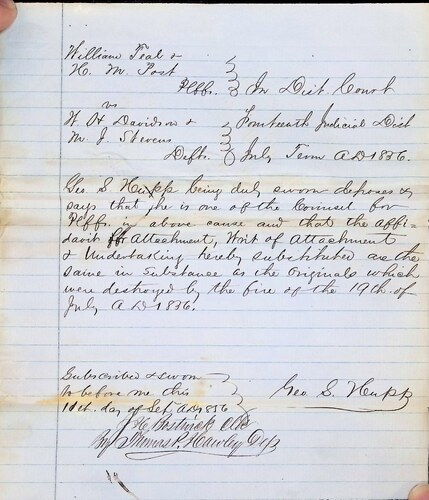 William Teal &
H. M. Post
Plffs. In Dist Court
vs
W. H Davidson & Fourteenth Judicial Dist
M. J. Stevens
Defts. July Term A D 1856.
Geo. S. Hupp being duly sworn deposes &
says that he is one of the Counsel for
Plffs. in above cause and that the affi-
davit for Attachment, Writ of Attachment
& Undertaking hereby substituted are the
same in substance as the Originals which
were destroyed by the fire of the 19th of
July A D 1856.
Subscribed & sworn
to before me this
11th. day of Sept A D 1856
Geo S. Hupp
By Thomas P. Hawley Dep